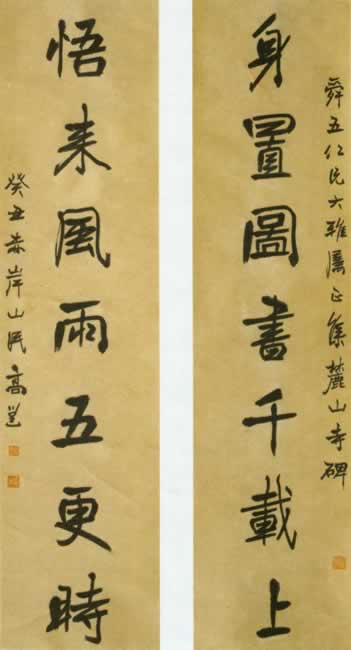 舜五仁兄大雅屬正集麓山寺碑
身置圖書千載上
悟来風雨五更時
癸丑赤岸山民高邕